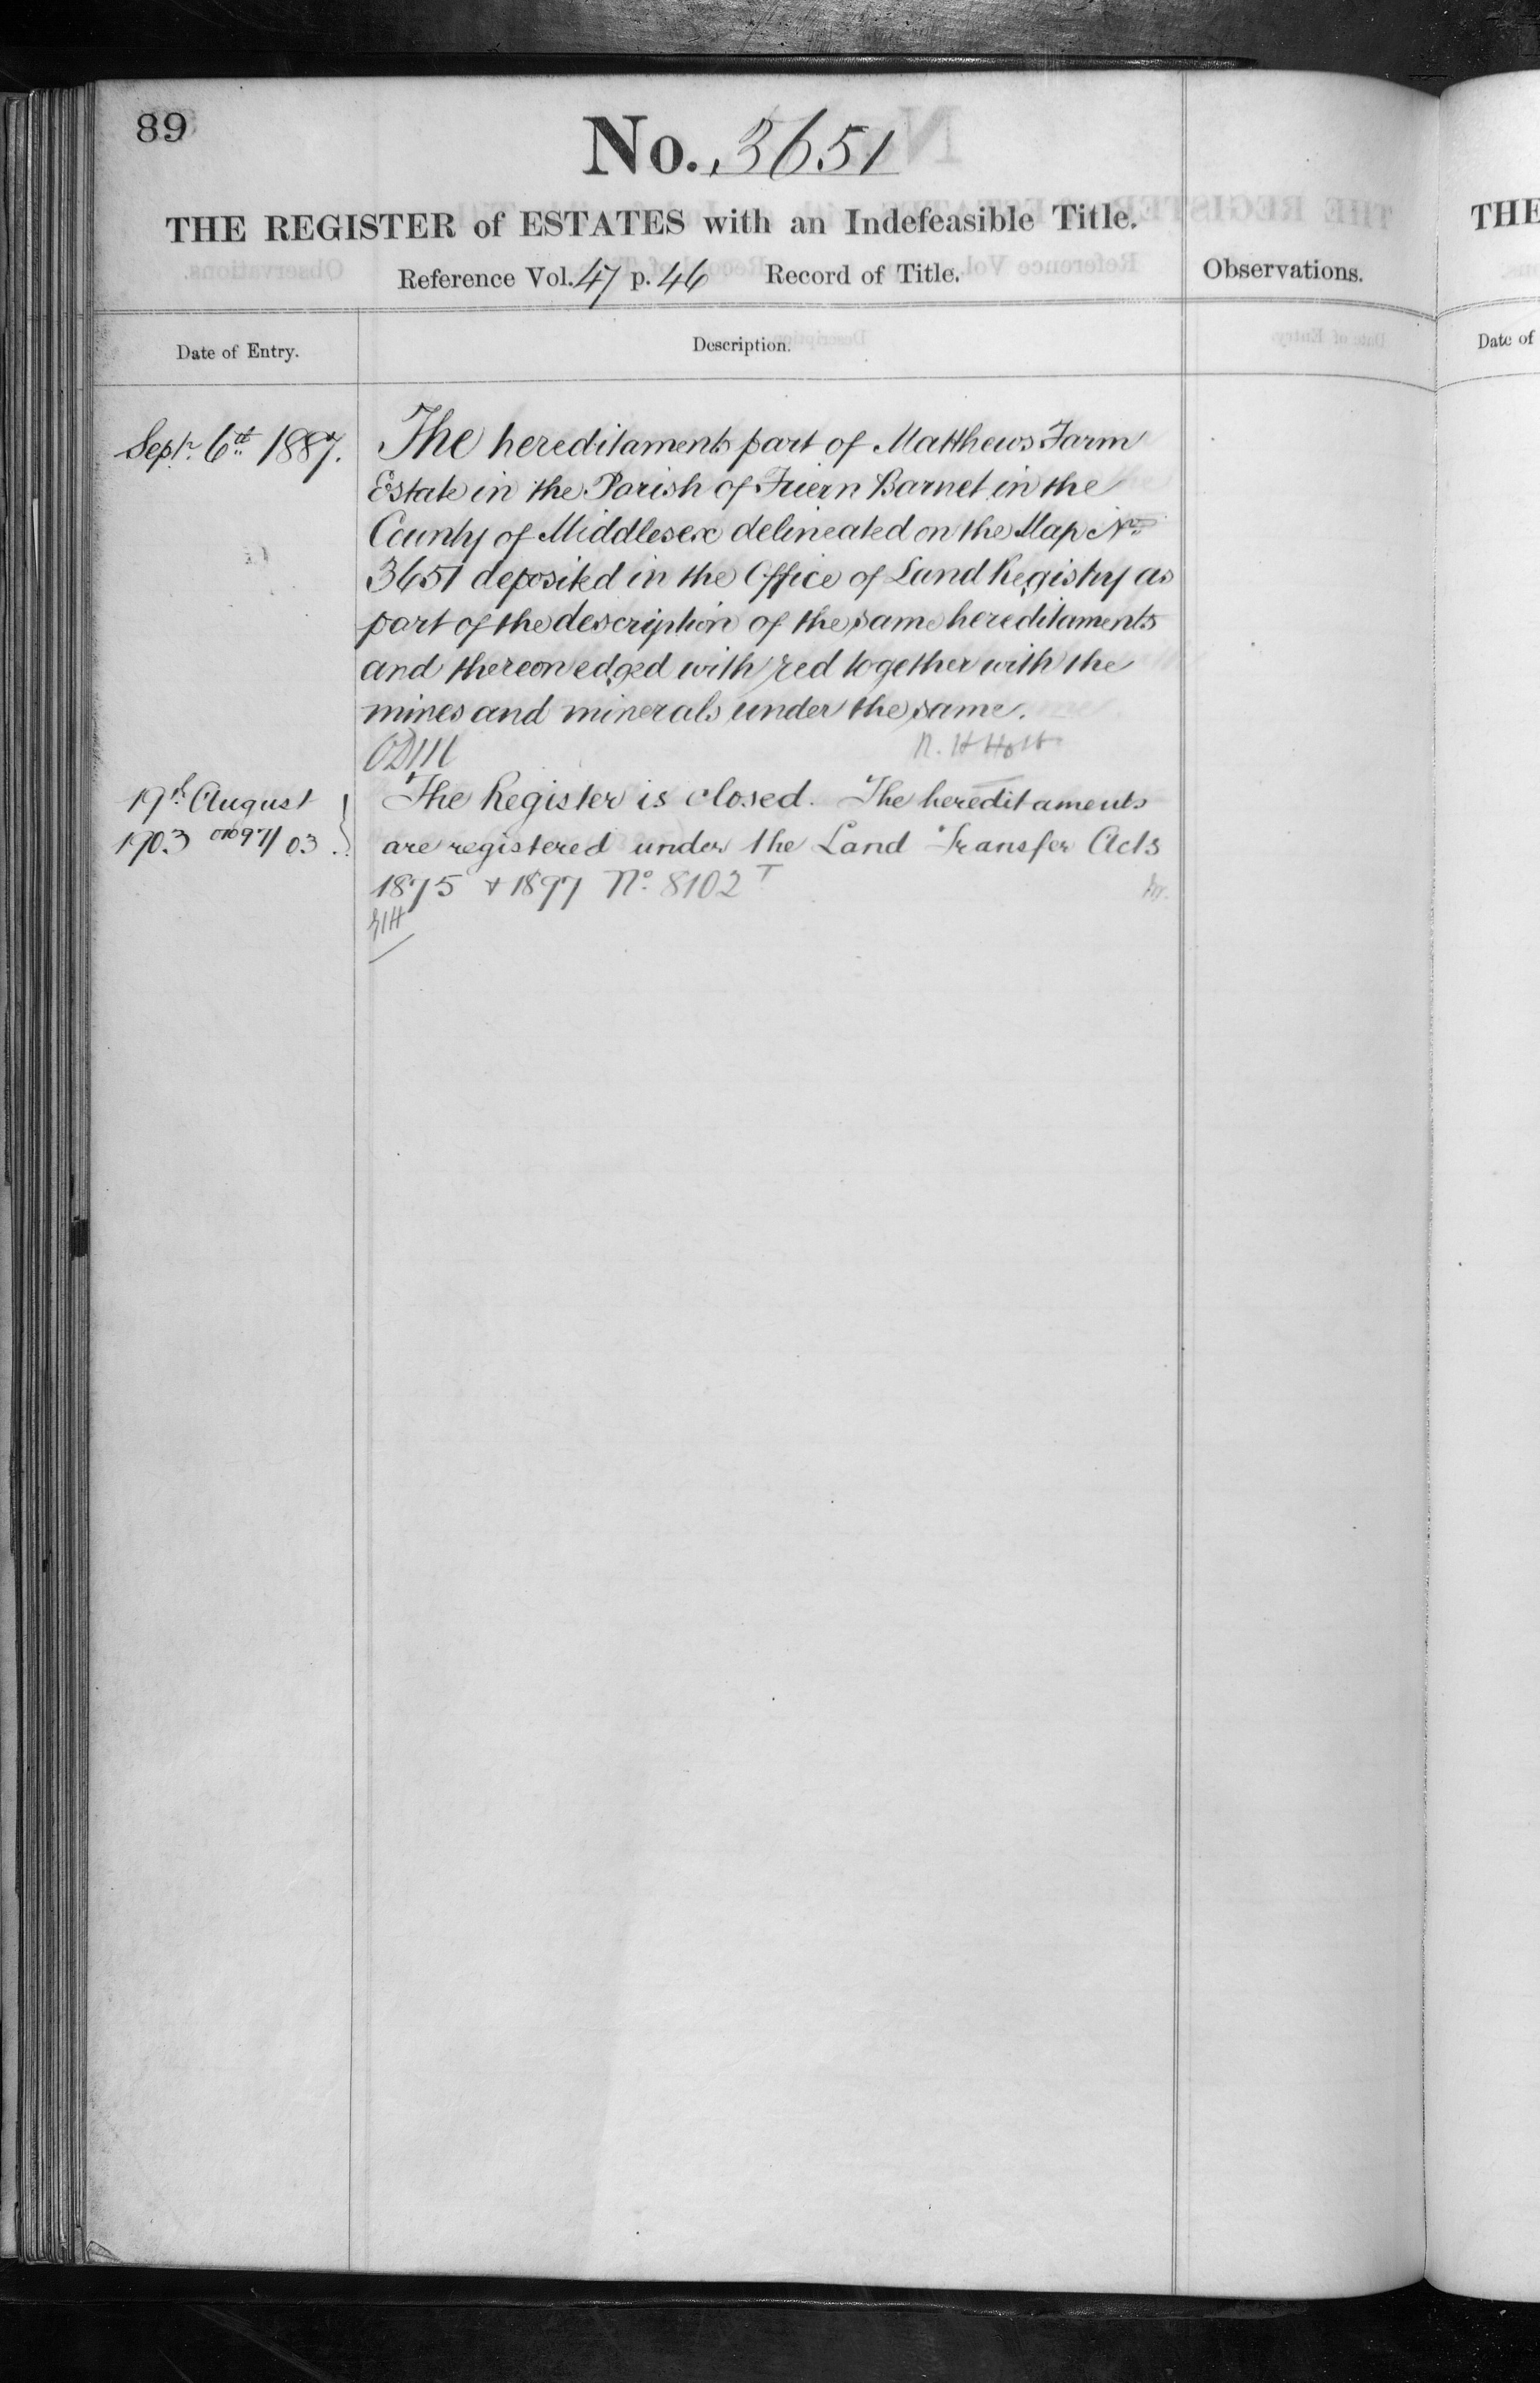 89
No. 3651
THE REGISTER of ESTATES with an Indefeasible Title.
Reference Vol. 47 p. 46 Record of Title.
Observations.
Date of Entry.
Description.
Sepr. 6th 1887.
The hereditaments part of Matthews Farm
Estate in the Parish of Friern Barnet in the
County of Middlesex delineated on the Map No.
3651 deposited in the Office of Land Registry as
part of the description of the same hereditaments
and thereon edged with red together with the
mines and minerals under the same.
R. H Holt
19th August
1903 /03
The Register is closed. The hereditaments
are registered under the Land Transfer Acts
1875 & 1897 No. 8102 T
THE
Date of